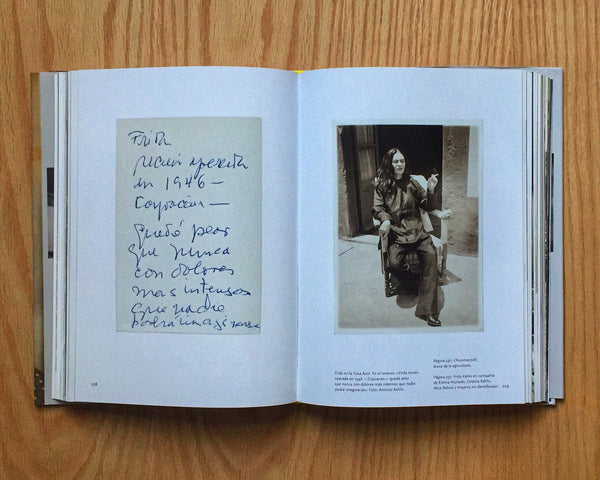 Frida
recién operada
en 1946 —
Coyoacán —
quedó peor
que nunca
con dolores
mas intensos
que nadie
podrá imaginarse
228
Frida en la Casa Azul. En el reverso: «Frida recién
operada en 1946. —Coyoacán— quedó peor
que nunca con dolores más intensos que nadie
podrá imaginarse». Foto: Antonio Kahlo.
Página 230: Chicomecóatl,
diosa de la agricultura.
Página 231: Frida Kahlo en compañía
de Emma Hurtado, Cristina Kahlo,
Alice Rahon y mujeres no identificadas.
229